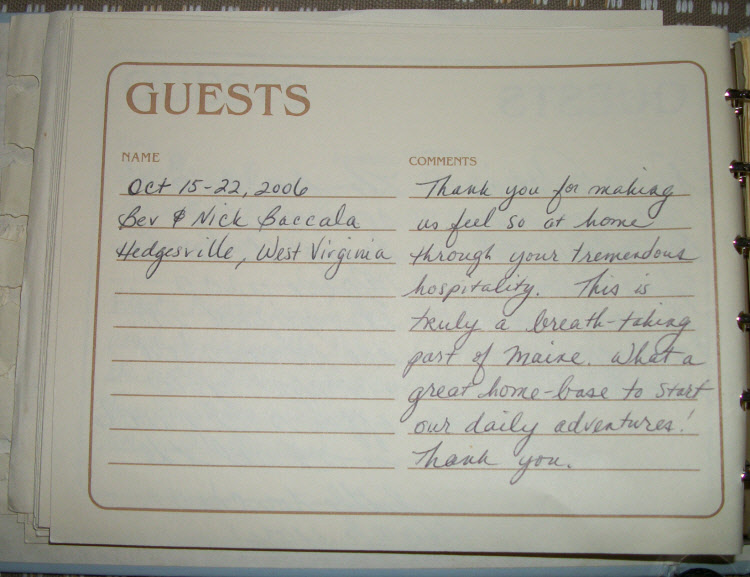 GUESTS
NAME
Oct 15-22, 2006
Bev & Nick Baccala
Hedgesville, West Virginia
COMMENTS
Thank you for making
us feel so at home
through your tremendous
hospitality. This is
truly a breath-taking
part of Maine. What a
great home-base to start
our daily adventures!
Thank you.